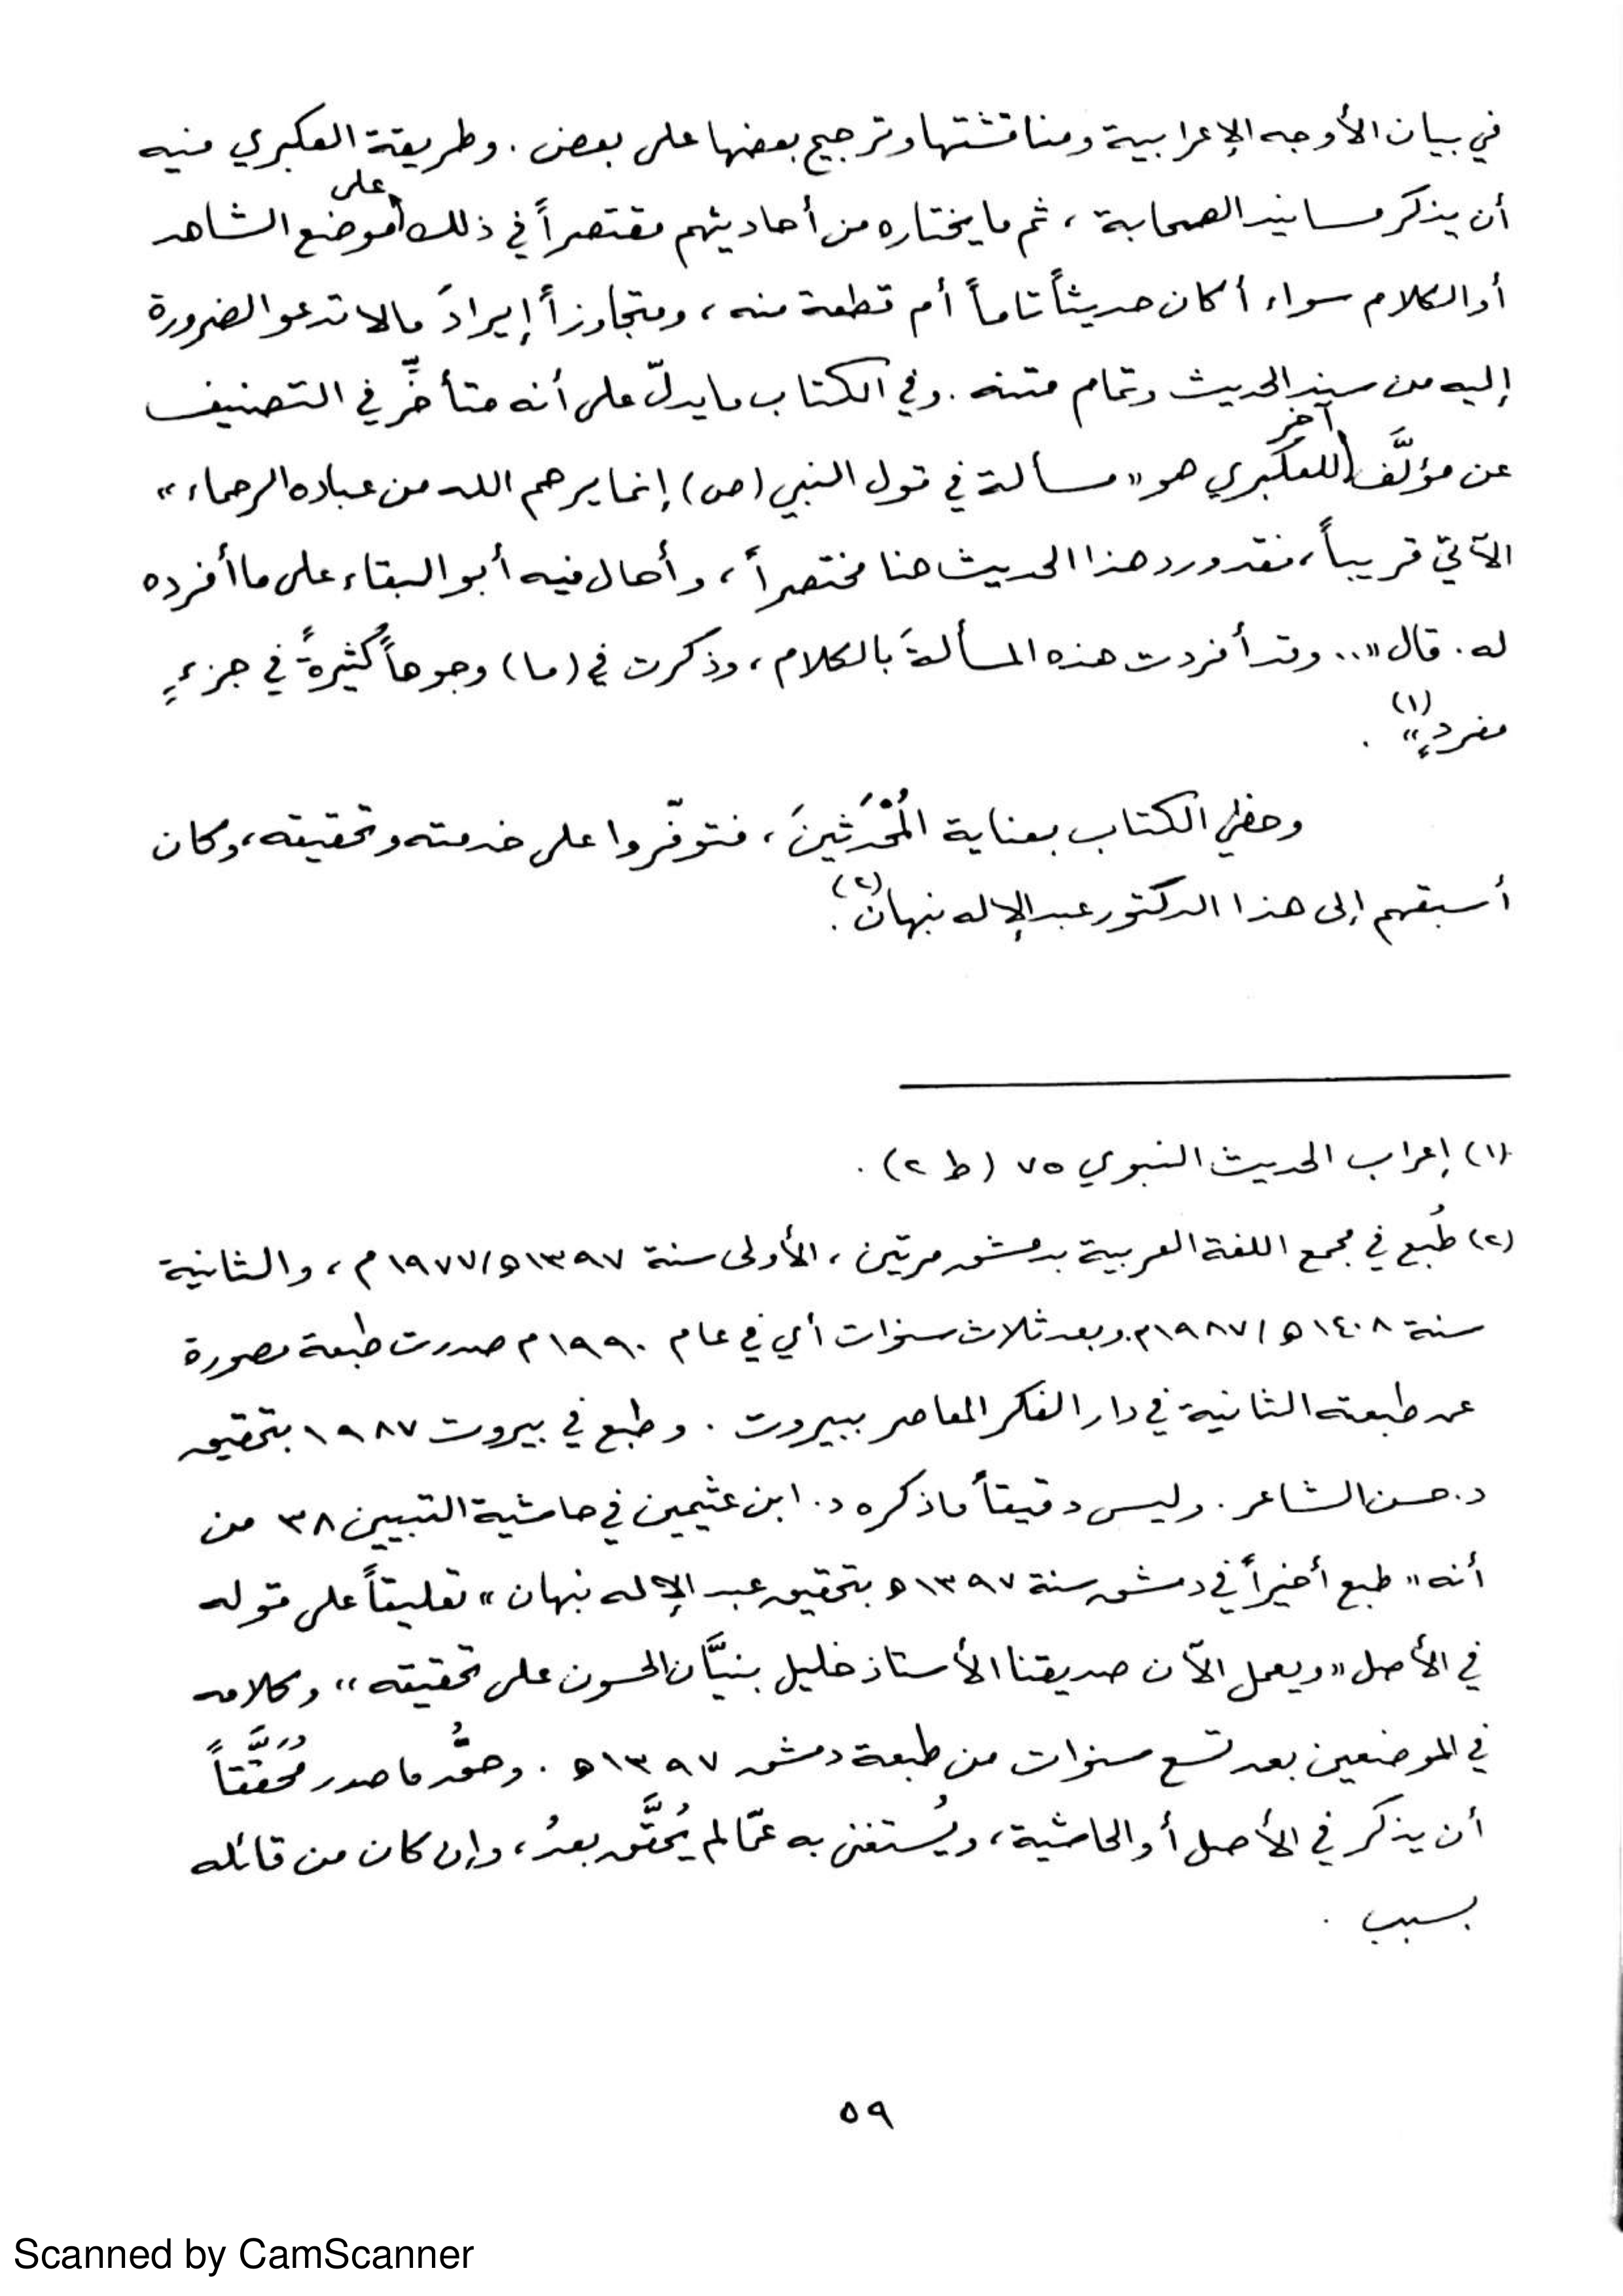 في بيان الأوجه الإعرابية ومناقشتها وترجيح بعضها على بعض . وطريقة العكبري فيه
أن يذكر مسانيد الصحابة ، ثم ما يختاره من أحاديثهم مقتصراً في ذلك على موضع الشاهد
أو الكلام سواء أكان حديثاً تاماً أم قطعة منه ، ومتجاوزاً إيرادَ مالا تدعو الضرورة
إليه من سند الحديث وتمام متنه . وفي الكتاب ما يدلّ على أنه متأخِّر في التصنيف
عن مؤلَّف آخر للعكبري هو « مسألة في قول النبي (ص) إنما يرحم الله من عباده الرحماء »
الآتي قريباً ، فقد ورد هذا الحديث هنا مختصراً ، وأحال فيه أبو البقاء على ما أفرده
له . قال « .. وقد أفردت هذه المسألةَ بالكلام ، وذكرت في (ما) وجوهاً كثيرةً في جزءٍ
مفردٍ » (١) .
وحظي الكتاب بعناية المُحْدَثينَ ، فتوفّروا على خدمته وتحقيقه ، وكان
أسبقهم إلى هذا الدكتور عبد الإله نبهان (٢) .
(١) إعراب الحديث النبوي ٧٥ (ط ٢) .
(٢) طُبع في مجمع اللغة العربية بدمشق مرتين ، الأولى سنة ١٣٩٧ه/١٩٧٧م ، والثانية
سنة ١٤٠٨ه/١٩٨٧م. وبعد ثلاث سنوات أي في عام ١٩٩٠م صدرت طبعة مصورة
عن طبعته الثانية في دار الفكر المعاصر ببيروت . وطبع في بيروت ١٩٨٧ بتحقيق
د. حسن الشاعر . وليس دقيقاً ما ذكره د. ابن عثيمين في حاشية التبيين ٣٨ من
أنه « طبع أخيراً في دمشق سنة ١٣٩٧ه بتحقيق عبد الإله نبهان » تعليقاً على قوله
في الأصل « ويعمل الآن صديقنا الأستاذ خليل بنيَّان الحسون على تحقيقه » وكلامه
في الموضعين بعد تسع سنوات من طبعة دمشق ١٣٩٧ه . وحقُّ ما صدر مُحَقَّقاً
أن يذكر في الأصل أو الحاشية ، ويُستغنى به عمّا لم يُحقَّق بعدُ ، وإن كان من قائله
بسبب .
٥٩
Scanned by CamScanner